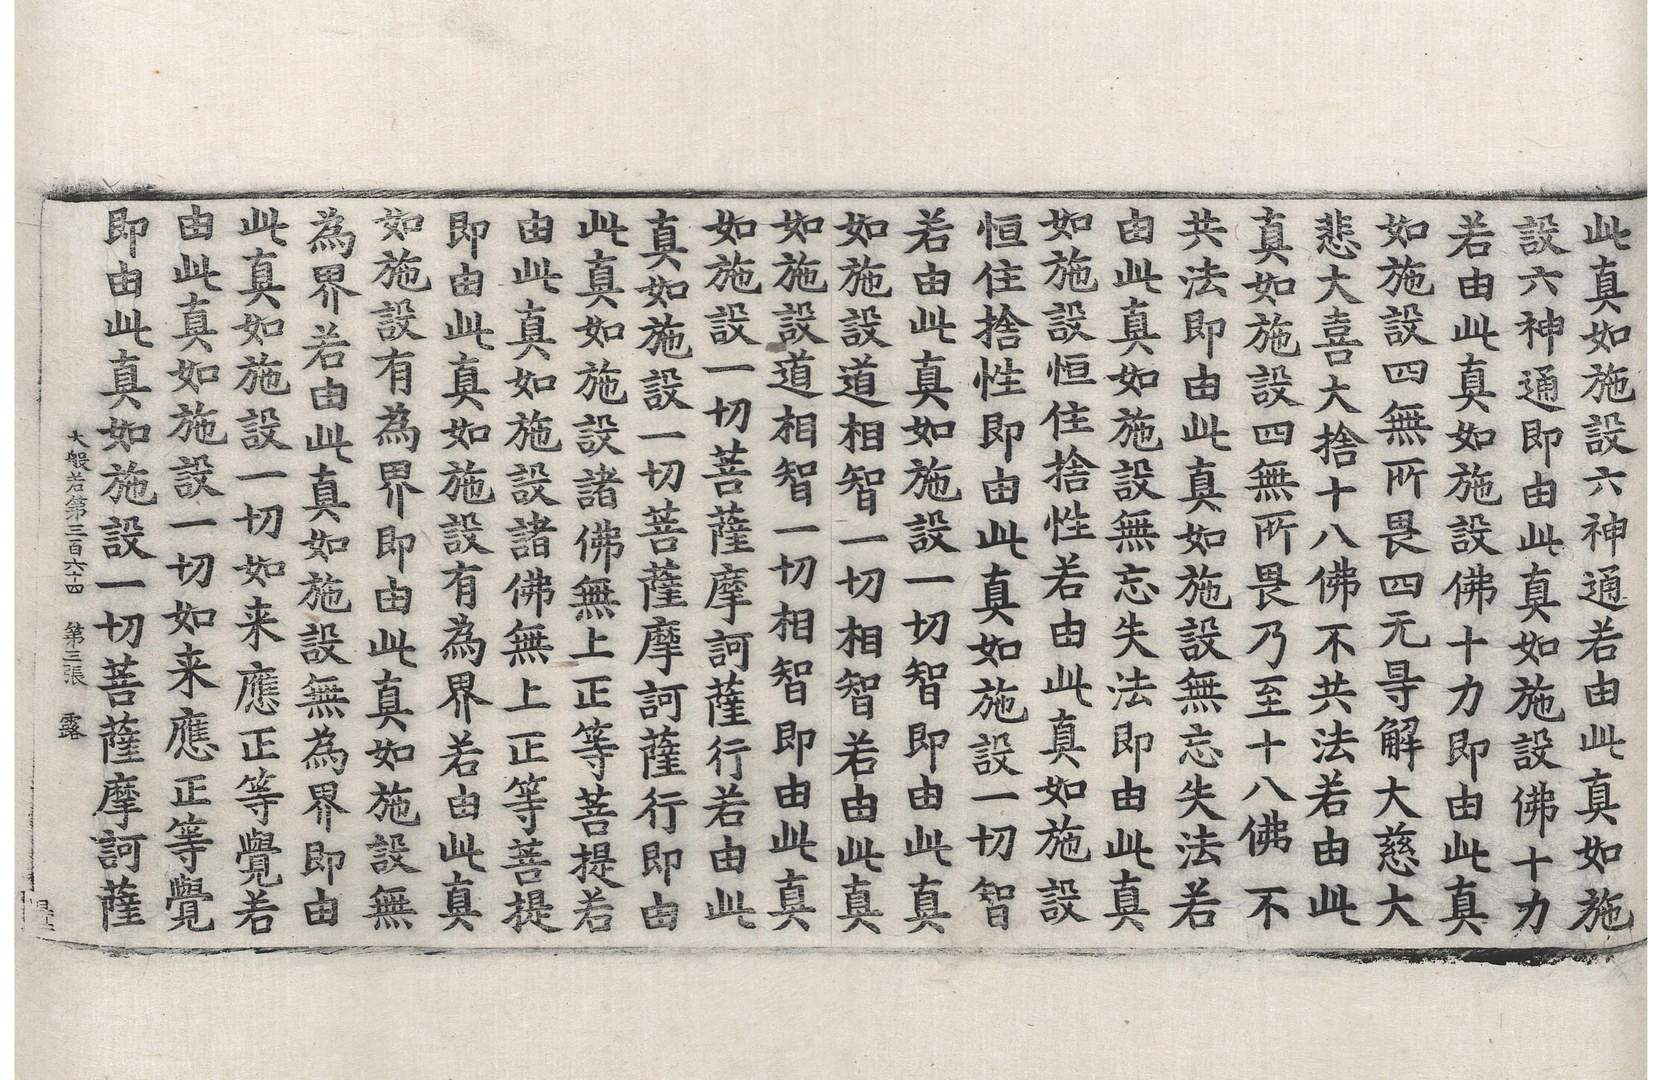 此真如施設六神通若由此真如施
設六神通即由此真如施設佛十力
若由此真如施設佛十力即由此真
如施設四無所畏四无㝵解大慈大
悲大喜大捨十八佛不共法若由此
真如施設四無所畏乃至十八佛不
共法即由此真如施設無忘失法若
由此真如施設無忘失法即由此真
如施設恒住捨性若由此真如施設
恒住捨性即由此真如施設一切智
若由此真如施設一切智即由此真
如施設道相智一切相智若由此真
如施設道相智一切相智即由此真
如施設一切菩薩摩訶薩行若由此
真如施設一切菩薩摩訶薩行即由
此真如施設諸佛無上正等菩提若
由此真如施設諸佛無上正等菩提
即由此真如施設有為界若由此真
如施設有為界即由此真如施設無
為界若由此真如施設無為界即由
此真如施設一切如来應正等覺若
由此真如施設一切如来應正等覺
即由此真如施設一切菩薩摩訶薩
大般若第三百六十四 第三張 露